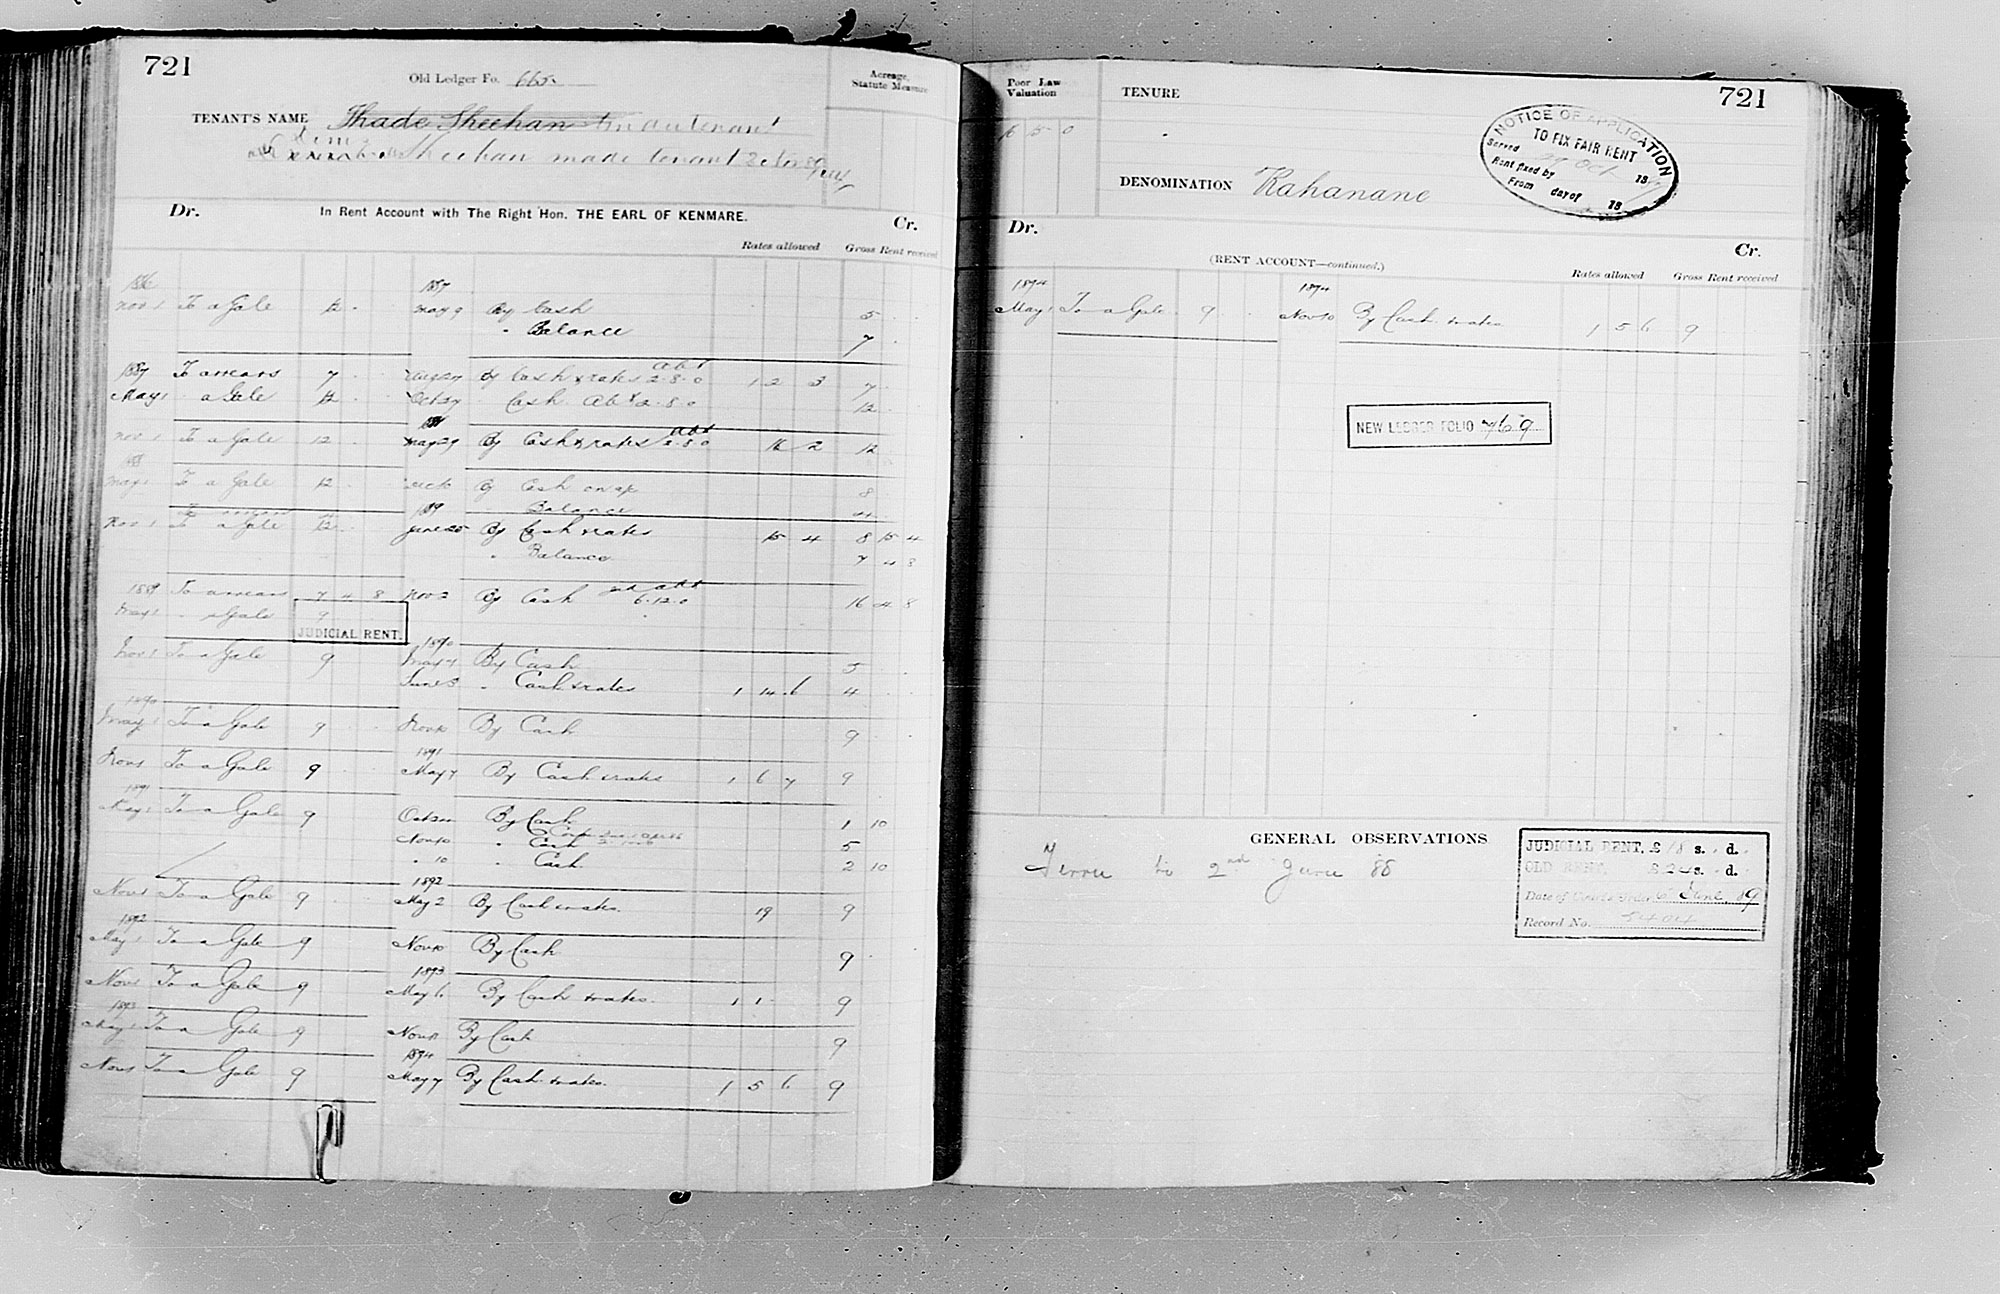 721
Old Ledger Fo. 665.
Acreage, Statute Measure
TENANT'S NAME Thade Sheehan
Sheehan made tenant
Dr. In Rent Account with The Right Hon. THE EARL OF KENMARE. Cr.
Rates allowed Gross Rent received
1886 1887
Nov 1 To a Gale 12 . May 9 By Cash 5
" Balance 7
abt
1887 To arrears 7 Aug 27 By Cash & rates 2.8.0 1 2 3 7
May 1 a Gale 12 Oct 27 Cash abt 2.8.0 12
abt
Nov 1 To a Gale 12 May 29 By Cash & rates 2.8.0 16 2 12
88
May 1 To a Gale 12 By Cash on a/c 8
Balance
189
Nov 1 To a Gale 12 June 25 By Cash & rates 15 4 8 15 4
" Balance 7 4 8
abt
1889 To arrears 7 4 8 Nov 2 By Cash 6.12.0 16 4 8
May 1 a Gale 9
JUDICIAL RENT.
1890
Nov 1 To a Gale 9 May 7 By Cash 5
June 5 " Cash & rates 1 14 6 4
1890
May 1 To a Gale 9 Nov 10 By Cash 9
1891
Nov 1 To a Gale 9 May 7 By Cash & rates 1 6 7 9
1891
May 1 To a Gale 9 By Cash 1 10
Nov 10 " Cash 5
" 10 " Cash 2 10
1892
Nov 1 To a Gale 9 May 2 By Cash & rates. 19 9
1892
May 1 To a Gale 9 Nov 10 By Cash 9
1893
Nov 1 To a Gale 9 May 6 By Cash & rates. 1 1 9
1893
May 1 To a Gale 9 By Cash 9
1894
Nov 1 To a Gale 9 May 7 By Cash & rates. 1 5 6 9
Poor Law Valuation
6 5 0
TENURE
721
NOTICE OF APPLICATION
TO FIX FAIR RENT
Served 27 Oct 18
Rent fixed by
From day of 18
DENOMINATION Kahanane
Dr. Cr.
(RENT ACCOUNT—continued.)
Rates allowed Gross Rent received
1894 1894
May 1 To a Gale 9 Nov 10 By Cash & rates 1 5 6 9
NEW LEDGER FOLIO 769
GENERAL OBSERVATIONS
to 2nd June 88
JUDICIAL RENT, £ 18 s. . d.
OLD RENT, £ 24 s. . d.
Date of Court Order 6 June 89
Record No. 5404